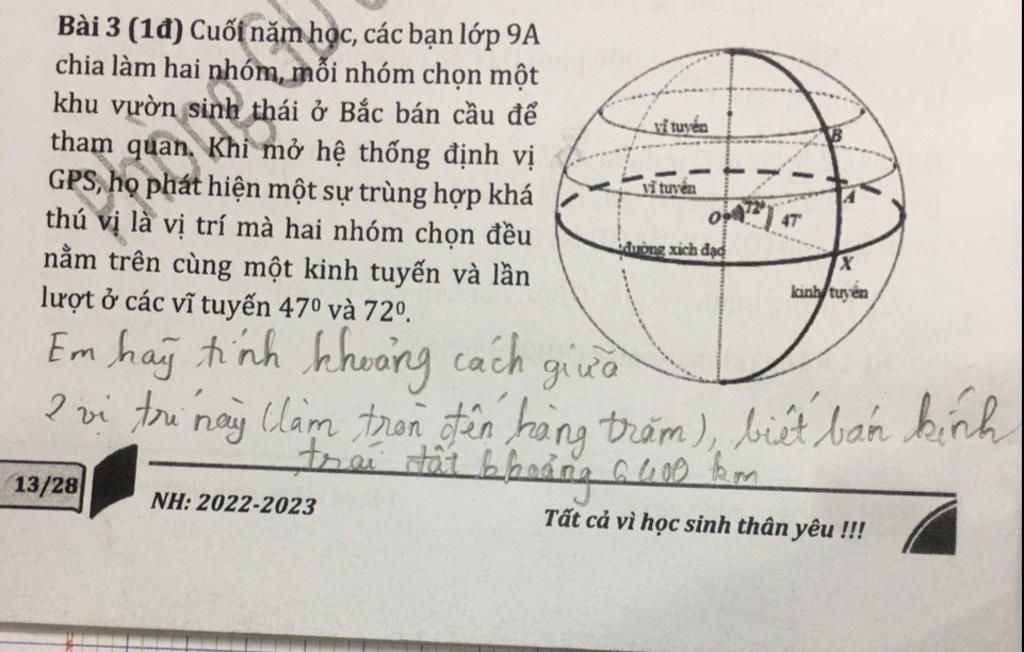 Bài 3 (1đ) Cuối năm học, các bạn lớp 9A
chia làm hai nhóm, mỗi nhóm chọn một
khu vườn sinh thái ở Bắc bán cầu để
tham quan. Khi mở hệ thống định vị
GPS, họ phát hiện một sự trùng hợp khá
thú vị là vị trí mà hai nhóm chọn đều
nằm trên cùng một kinh tuyến và lần
lượt ở các vĩ tuyến 47⁰ và 72⁰.
vĩ tuyến
B
vĩ tuyến
A
O
72⁰
47⁰
đường xích đạo
X
kinh tuyến
Em hãy tính khoảng cách giữa
2 vị trí này (làm tròn đến hàng trăm), biết bán kính
trái đất khoảng 6400 km
13/28
NH: 2022-2023
Tất cả vì học sinh thân yêu !!!
Phòng GD